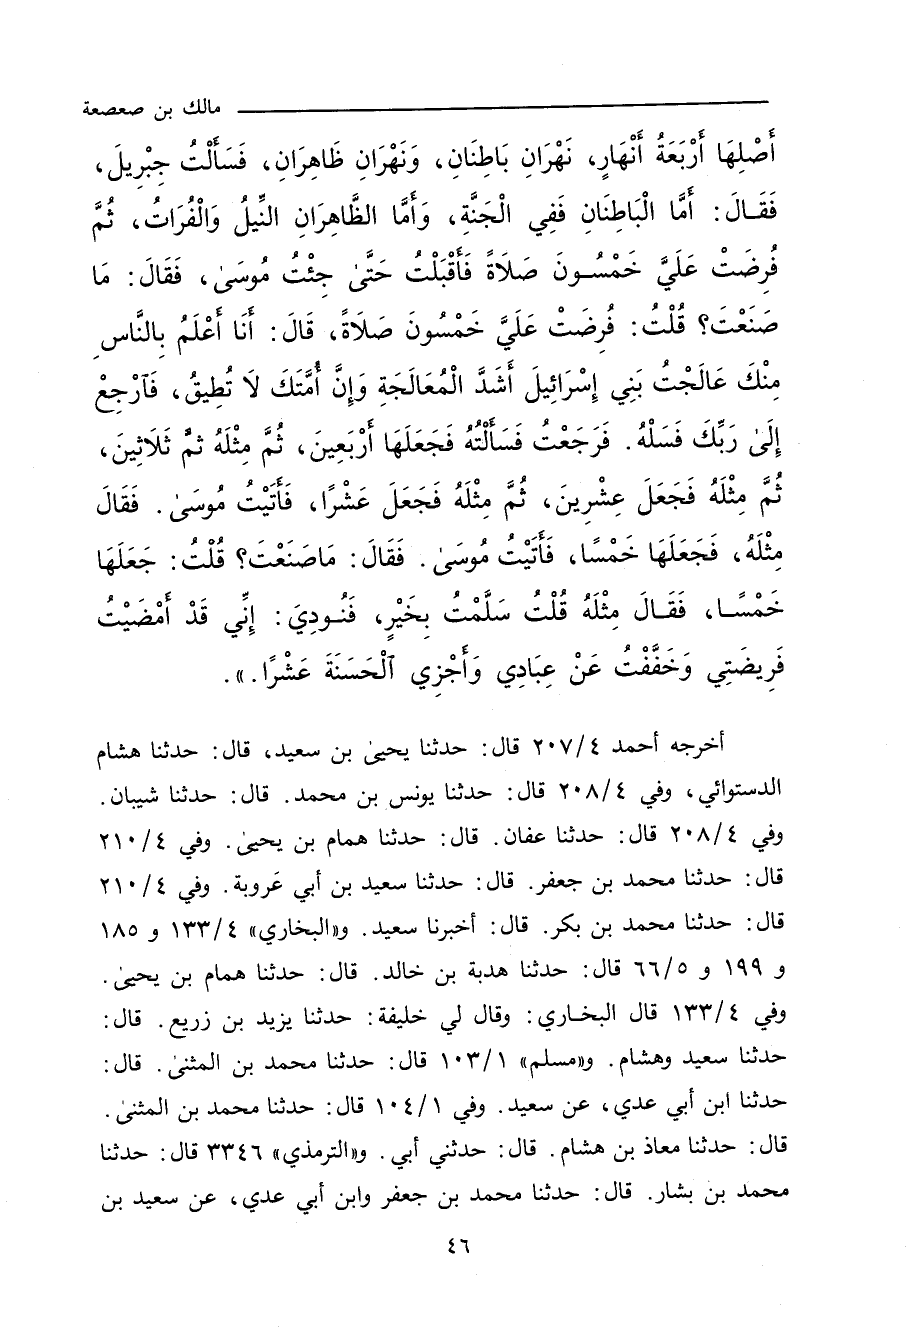 مالك بن صعصعة
أَصْلِهَا أَرْبَعَةُ أَنْهَارٍ، نَهْرَانِ بَاطِنَانِ، وَنَهْرَانِ ظَاهِرَانِ، فَسَأَلْتُ جِبْرِيلَ،
فَقَالَ: أَمَّا الْبَاطِنَانِ فَفِي الْجَنَّةِ، وَأَمَّا الظَّاهِرَانِ النِّيلُ وَالْفُرَاتُ، ثُمَّ
فُرِضَتْ عَلَيَّ خَمْسُونَ صَلَاةً فَأَقْبَلْتُ حَتَّىٰ جِئْتُ مُوسَىٰ، فَقَالَ: مَا
صَنَعْتَ؟ قُلْتُ: فُرِضَتْ عَلَيَّ خَمْسُونَ صَلَاةً، قَالَ: أَنَا أَعْلَمُ بِالنَّاسِ
مِنْكَ عَالَجْتُ بَنِي إِسْرَائِيلَ أَشَدَّ الْمُعَالَجَةِ وَإِنَّ أُمَّتَكَ لَا تُطِيقُ، فَٱرْجِعْ
إِلَىٰ رَبِّكَ فَسَلْهُ. فَرَجَعْتُ فَسَأَلْتُهُ فَجَعَلَهَا أَرْبَعِينَ، ثُمَّ مِثْلَهُ ثمَّ ثَلَاثِينَ،
ثُمَّ مِثْلَهُ فَجَعَلَ عِشْرِينَ، ثُمَّ مِثْلَهُ فَجَعَلَ عَشْرًا، فَأَتَيْتُ مُوسَىٰ. فَقَالَ
مِثْلَهُ، فَجَعَلَهَا خَمْسًا، فَأَتَيْتُ مُوسَىٰ. فَقَالَ: مَاصَنَعْتَ؟ قُلْتُ: جَعَلَهَا
خَمْسًا، فَقَالَ مِثْلَهُ قُلْتُ سَلَّمْتُ بِخَيْرٍ، فَنُودِيَ: إِنِّي قَدْ أَمْضَيْتُ
فَرِيضَتِي وَخَفَّفْتُ عَنْ عِبَادِي وَأَجْزِي ٱلْحَسَنَةَ عَشْرًا.».
أخرجه أحمد ٢٠٧/٤ قال: حدثنا يحيىٰ بن سعيد، قال: حدثنا هشام
الدستوائي، وفي ٢٠٨/٤ قال: حدثنا يونس بن محمد. قال: حدثنا شيبان.
وفي ٢٠٨/٤ قال: حدثنا عفان. قال: حدثنا همام بن يحيىٰ. وفي ٢١٠/٤
قال: حدثنا محمد بن جعفر. قال: حدثنا سعيد بن أبي عَروبة. وفي ٢١٠/٤
قال: حدثنا محمد بن بكر. قال: أخبرنا سعيد. و«البخاري» ١٣٣/٤ و ١٨٥
و ١٩٩ و ٦٦/٥ قال: حدثنا هدبة بن خالد. قال: حدثنا همام بن يحيىٰ.
وفي ١٣٣/٤ قال البخاري: وقال لي خليفة: حدثنا يزيد بن زريع. قال:
حدثنا سعيد وهشام. و«مسلم» ١٠٣/١ قال: حدثنا محمد بن المثنىٰ. قال:
حدثنا ابن أبي عدي، عن سعيد. وفي ١٠٤/١ قال: حدثنا محمد بن المثنىٰ.
قال: حدثنا معاذ بن هشام. قال: حدثني أبي. و«الترمذي» ٣٣٤٦ قال: حدثنا
محمد بن بشار. قال: حدثنا محمد بن جعفر وابن أبي عدي، عن سعيد بن
٤٦